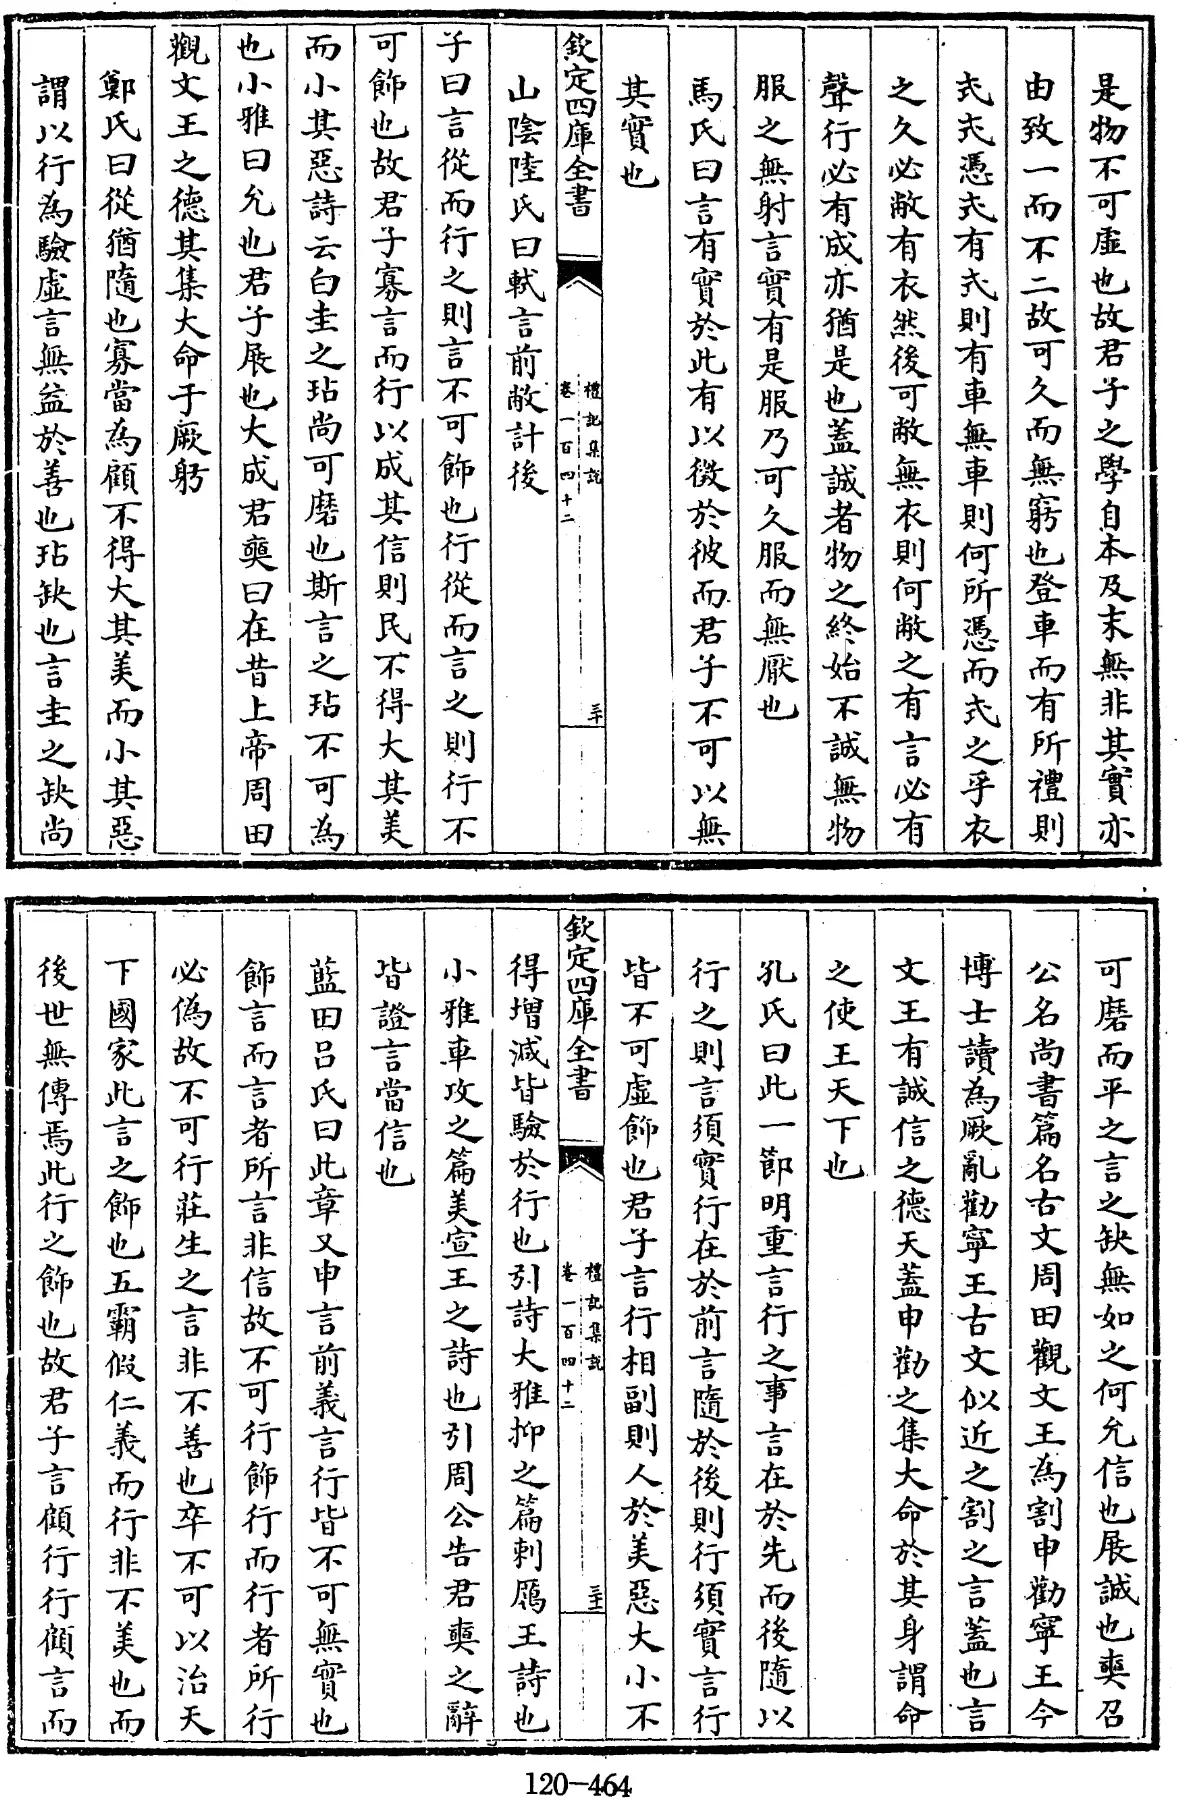 是物不可虛也故君子之學自本及末無非其實亦
由致一而不二故可久而無窮也登車而有所禮則
式式憑式有式則有車無車則何所憑而式之乎衣
之久必敝有衣然後可敝無衣則何敝之有言必有
聲行必有成亦猶是也蓋誠者物之終始不誠無物
服之無射言實有是服乃可久服而無厭也
馬氏曰言有實於此有以徵於彼而君子不可以無
其實也
欽定四庫全書
禮記集說
卷一百四十二
三十
山陰陸氏曰軾言前敝計後
子曰言從而行之則言不可飾也行從而言之則行不
可飾也故君子寡言而行以成其信則民不得大其美
而小其惡詩云白圭之玷尚可磨也斯言之玷不可為
也小雅曰允也君子展也大成君奭曰在昔上帝周田
觀文王之德其集大命于厥躬
鄭氏曰從猶隨也寡當為顧不得大其美而小其惡
謂以行為驗虛言無益於善也玷缺也言圭之缺尚
可磨而平之言之缺無如之何允信也展誠也奭召
公名尚書篇名古文周田觀文王為割申勸寧王今
博士讀為厥亂勸寧王古文似近之割之言蓋也言
文王有誠信之德天蓋申勸之集大命於其身謂命
之使王天下也
孔氏曰此一節明重言行之事言在於先而後隨以
行之則言須實行在於前言隨於後則行須實言行
皆不可虛飾也君子言行相副則人於美惡大小不
欽定四庫全書
禮記集說
卷一百四十二
三十一
得增減皆驗於行也引詩大雅抑之篇刺厲王詩也
小雅車攻之篇美宣王之詩也引周公告君奭之辭
皆證言當信也
藍田呂氏曰此章又申言前義言行皆不可無實也
飾言而言者所言非信故不可行飾行而行者所行
必偽故不可行莊生之言非不善也卒不可以治天
下國家此言之飾也五霸假仁義而行非不美也而
後世無傳焉此行之飾也故君子言顧行行顧言而
120-464